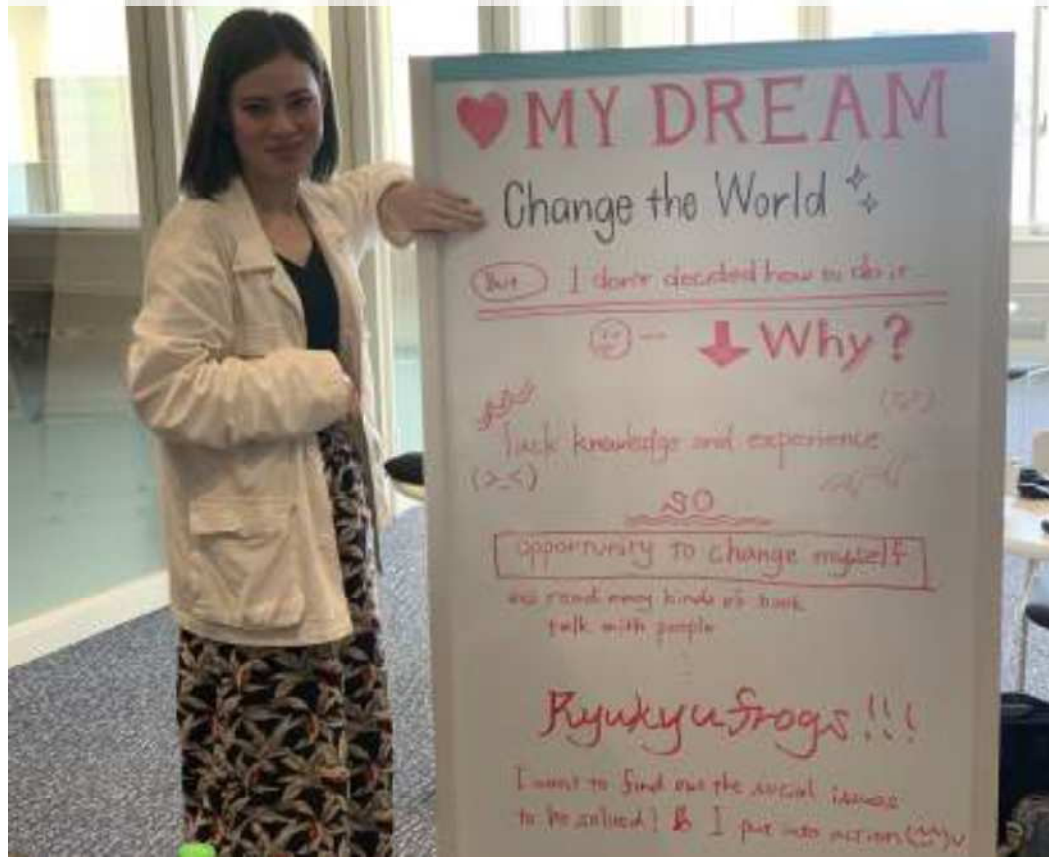 ♥MY DREAM
Change the World
But I don't decided how to do it
Why?
lack knowledge and experience
(>_<)
so
opportunity to change myself
read many kinds of book
talk with people
Ryukyufrogs!!!
I want to find out the social issues
to be solved! & I put into action(^^)v